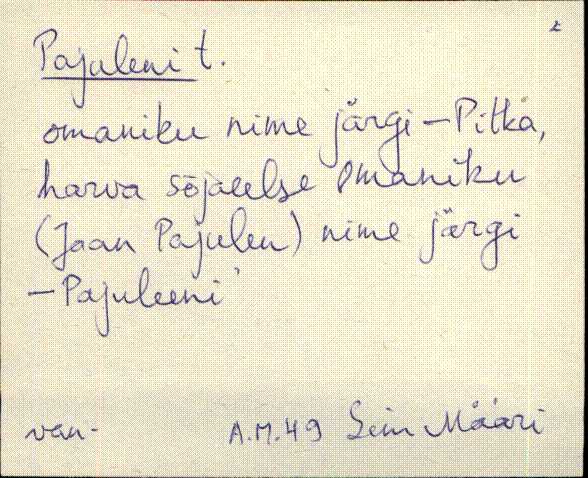 Pajuleni t.
omaniku nime järgi – Pitka,
harva sõjaeelse omaniku
(Jaan Pajulen) nime järgi
– Pajuleeni
van. A.M.49 Leini Määri